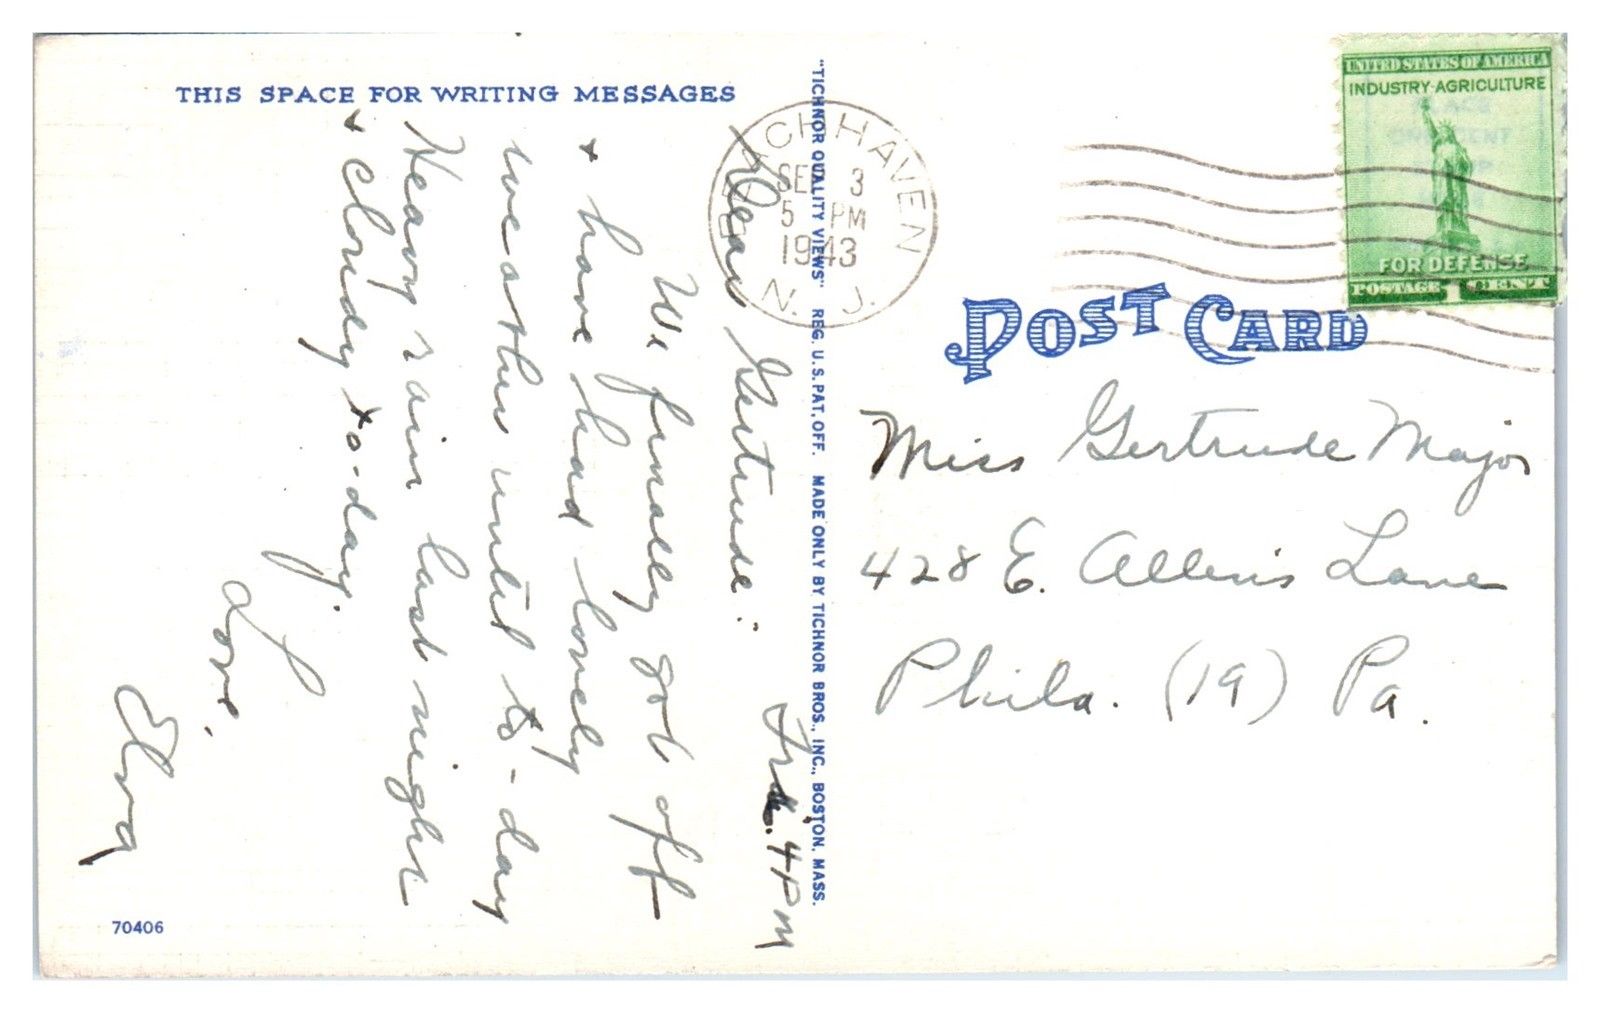 THIS SPACE FOR WRITING MESSAGES
Fri. 4 PM
Dear Gertrude:
We finally got off
+ have had lovely
weather until to-day
Heavy rain last night
+ cloudy to-day.
Love,
Elva
70406
"TICHNOR QUALITY VIEWS" REG. U.S. PAT. OFF. MADE ONLY BY TICHNOR BROS., INC., BOSTON, MASS.
BEACH HAVEN
SEP 3
5 PM
1943
N. J.
UNITED STATES OF AMERICA
INDUSTRY AGRICULTURE
FOR DEFENSE
POSTAGE 1 CENT
POST CARD
Miss Gertrude Major
428 E. Allens Lane
Phila. (19) Pa.